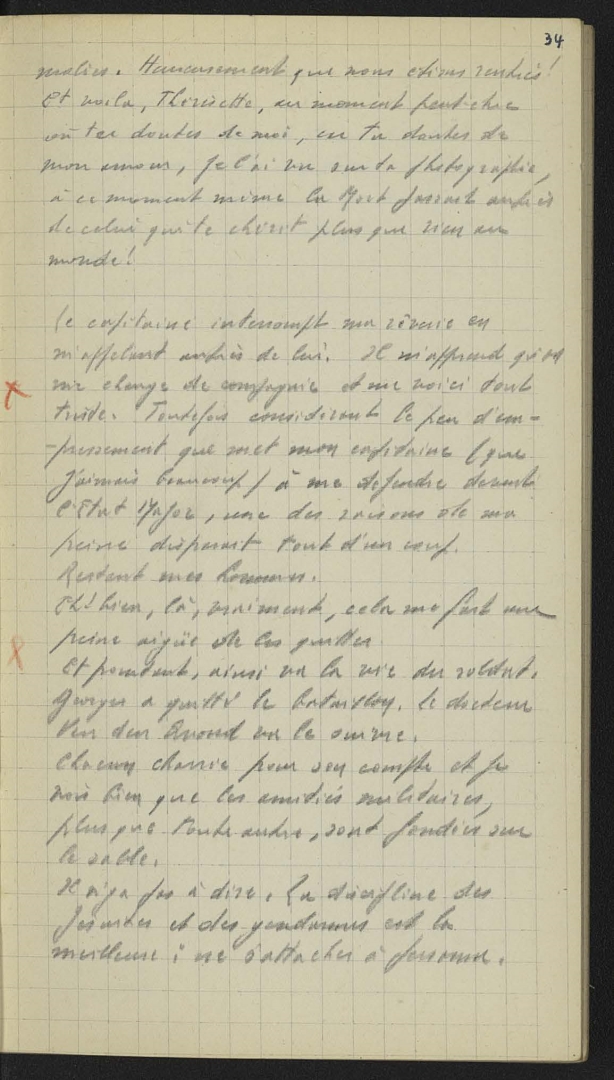 34
malies. Heureusement que nous étions rentrés!
Et voila, Thérisette, au moment peut-être
où tu doutes de moi, ou tu doutes de
mon amour, je l'ai vu sur ta photographie,
à ce moment même la Mort passait auprès
de celui qui te chérit plus que rien au
monde!
Le capitaine interrompt ma rêverie en
m'appelant auprès de lui. Il m'apprend qu'on
me change de compagnie et me voici tout
triste. Toutefois considérant le peu d'em-
-pressement que met mon capitaine (que
j'aimais beaucoup) à me défendre devant
l'Etat Major, une des raisons de ma
peine disparait tout d'un coup.
Restent mes hommes.
Eh! bien, là, vraiment, cela me fait une
peine aigüe de les quitter
Et pourtant, ainsi va la vie du soldat.
Georges a quitté le bataillon. Le docteur
Van den va le suivre.
Chacun charrie pour son compte et je
vois bien que les amitiés militaires,
plus que toute autre, sont fondées sur
le sable.
Il n'y a pas à dire. La discipline des
Jésuites et des gendarmes est la
meilleure : ne s'attacher à personne.